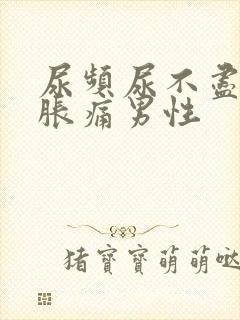 尿頻尿不盡
脹痛男性
猪寶寶萌萌哒